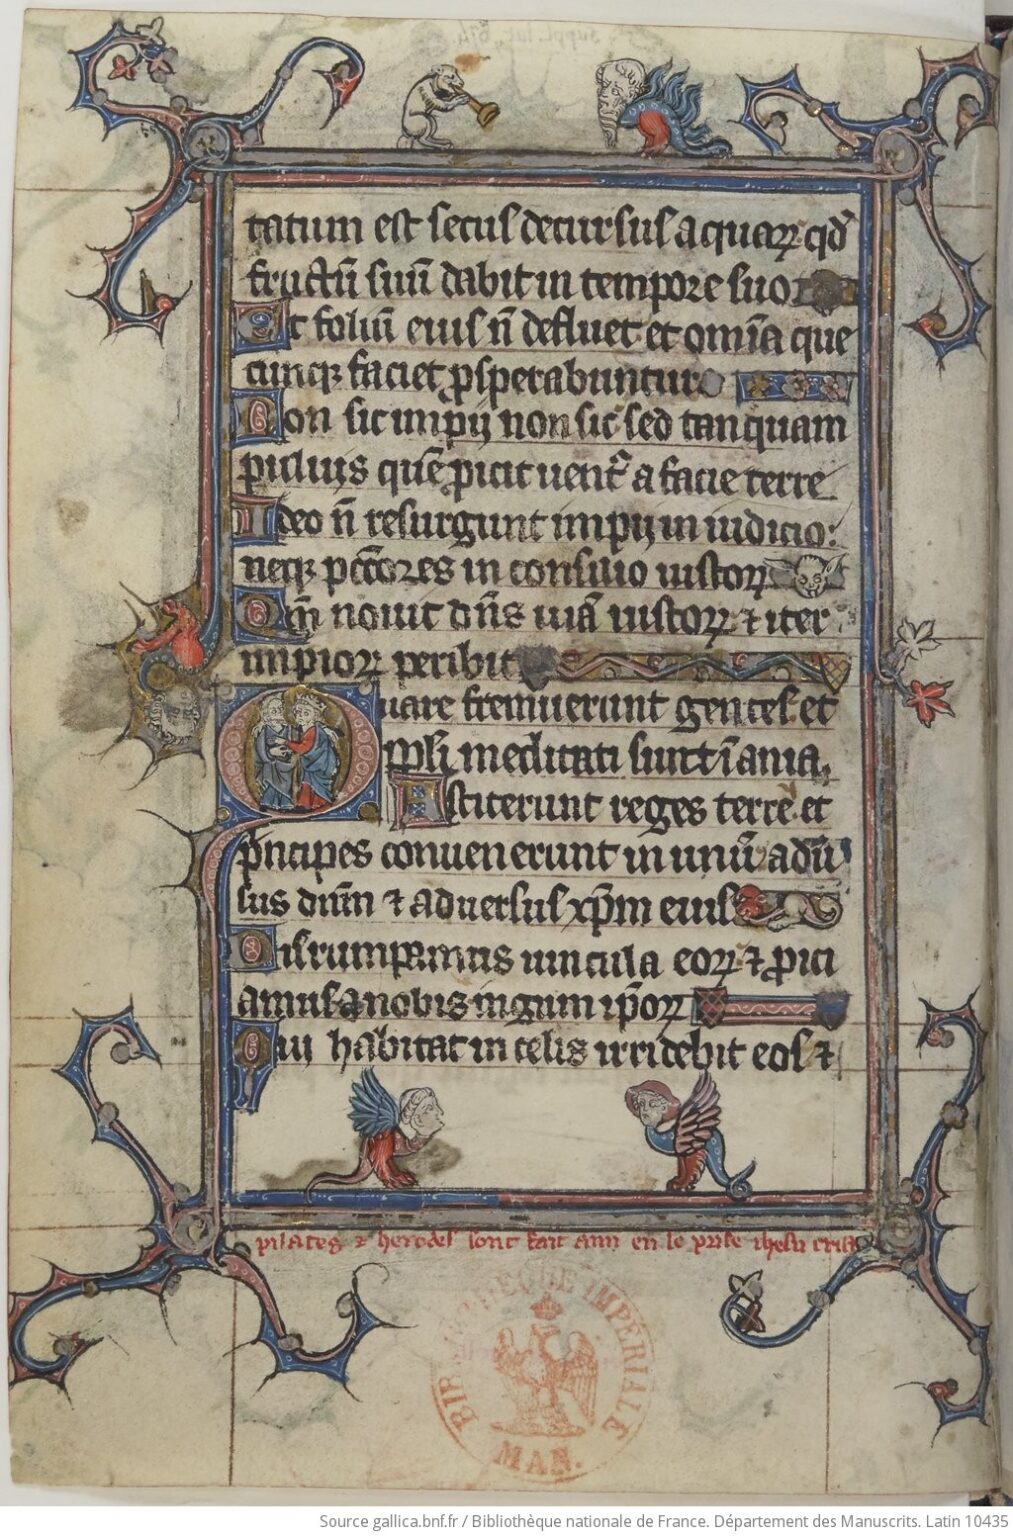 tatum est secus decursus aquaꝝ qd̄
fructū suū dabit in tempore suo
Et foliū eius n̄ defluet et om̄ia que
cunqꝫ faciet ꝓsperabuntur
Non sic impij non sic sed tanquam
puluis quē ꝓicit uent᷒ a facie terre
Ideo n̄ resurgunt impij in iudicio:
neqꝫ pctōres in consilio iustoꝝ
Qm̄ nouit dn̄s uiā iustoꝝ ⁊ iter
impioꝝ peribit
Quare fremuerunt gentes et
ppl̄i meditati sunt īania
Astiterunt reges terre et
pͥncipes conuenerunt in unū adū
sus dnm̄ ⁊ aduersus xp̄m eius
Disrumpamus uincula eoꝝ ⁊ ꝓici
amus a nobis iugum ip̄oꝝ
Qui habitat in celis irridebit eos ⁊
pilates ⁊ herodes sont fait ami en le prise ihesu crist
BIBLIOTHÈQUE IMPÉRIALE
MAN.
Source gallica.bnf.fr / Bibliothèque nationale de France. Département des Manuscrits. Latin 10435